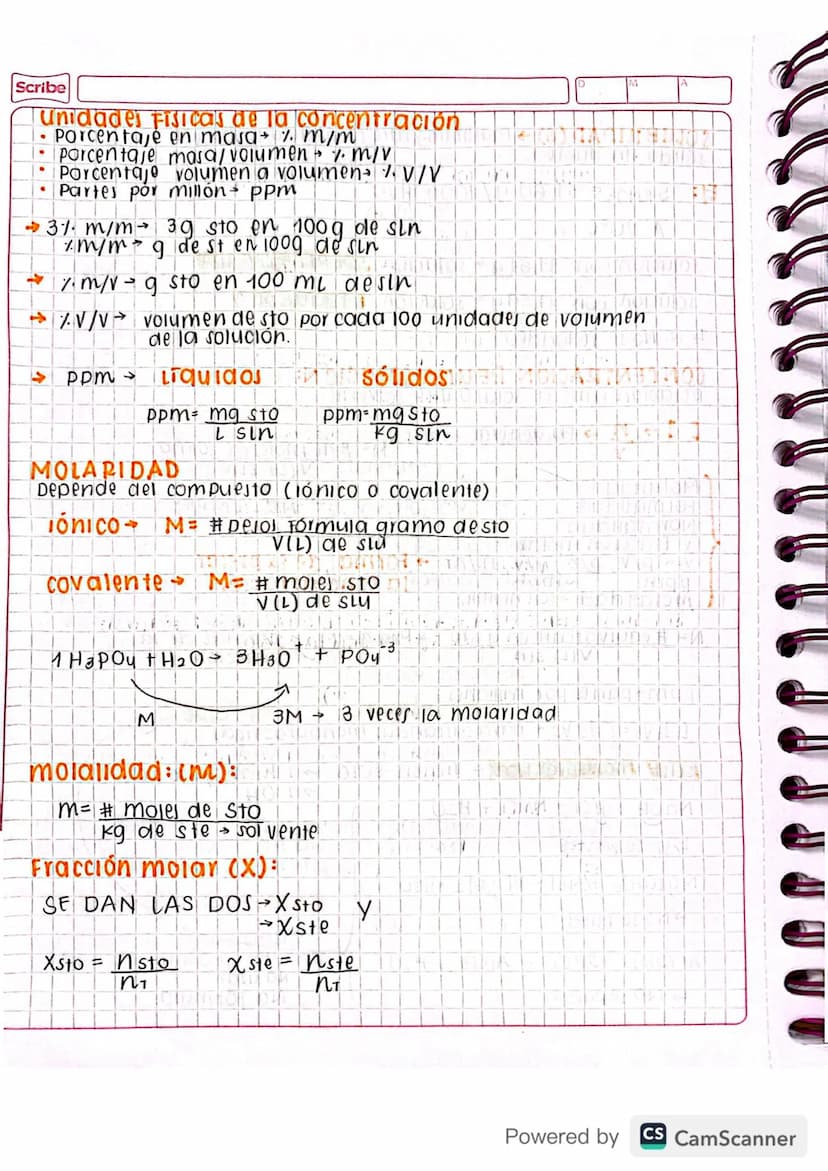 Scribe
D M A
Unidades Físicas de la concentración
• Porcentaje en masa → % m/m
• Porcentaje masa/volumen → % m/V
• Porcentaje volumen a volumen → % V/V
• Partes por millón → ppm
→ 3% m/m → 3g sto en 100g de sln
% m/m → g de st en 100g de sln
→ % m/v → g sto en 100 mL de sln
→ % V/V → volumen de sto por cada 100 unidades de volumen
de la solución.
→ ppm → Líquidos Sólidos
ppm = mg sto / L sln ppm = mg sto / kg sln
MOLARIDAD
Depende del compuesto (iónico o covalente)
iónico → M = # fórmula gramo de sto / V(L) de
covalente → M = # moles sto / V(L) de
1 H3PO4 + H2O → 3H3O+ + PO4-3
M 3M → 3 veces la molaridad
molalidad: (m):
m = # moles de sto / kg de ste → solvente
Fracción molar (X):
SE DAN LAS DOS → X sto y
→ X ste
Xsto = n sto / nT X ste = n ste / nT
Powered by CS CamScanner